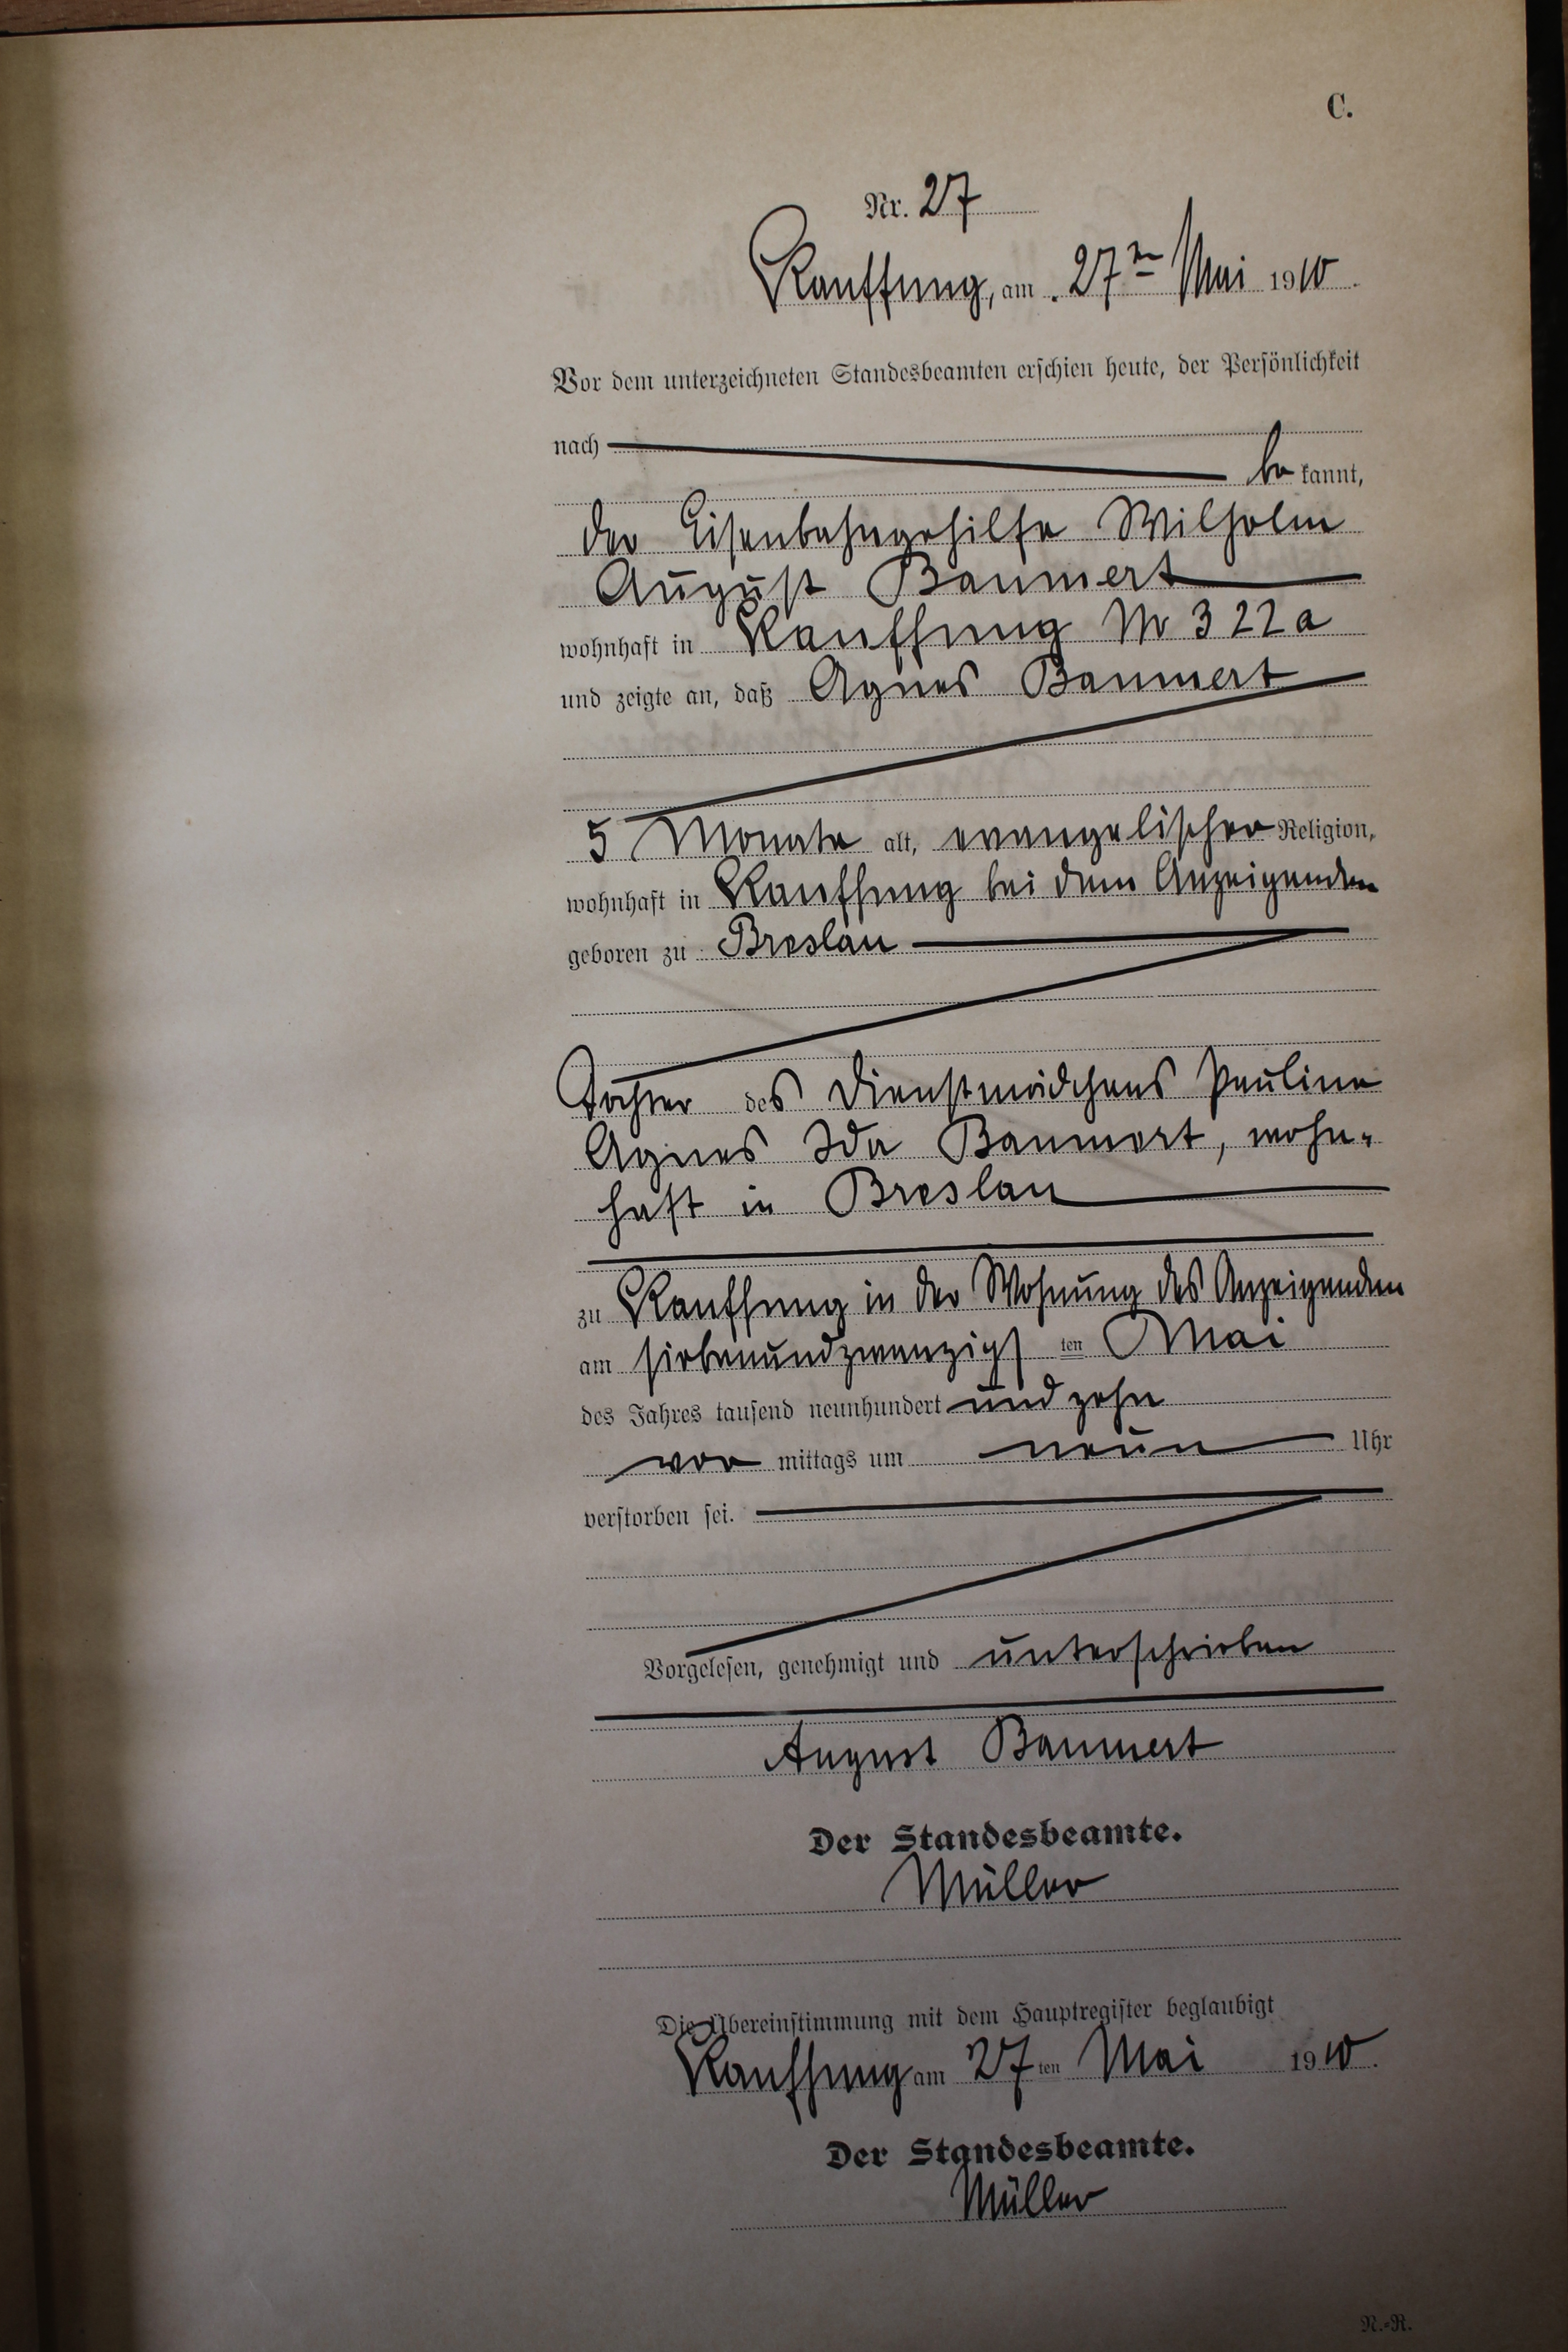 C.
Nr. 27
Kauffung, am 27ten Mai 1910.
Vor dem unterzeichneten Standesbeamten erschien heute, der Persönlichkeit
nach
be kannt,
der Eisenbahngehilfe Wilhelm
August Baumert
wohnhaft in Kauffung Nr 322a
und zeigte an, daß Agnes Baumert
5 Monate alt, evangelischer Religion,
wohnhaft in Kauffung bei dem Anzeigenden
geboren zu Breslau
Tochter des Dienstmädchens Pauline
Agnes Ida Baumert, wohn-
haft in Breslau
zu Kauffung in der Wohnung des Anzeigenden
am siebenundzwanzigs ten Mai
des Jahres tausend neunhundert und zehn
vor mittags um neun Uhr
verstorben sei.
Vorgelesen, genehmigt und unterschrieben
August Baumert
Der Standesbeamte.
Müller
Die Übereinstimmung mit dem Hauptregister beglaubigt
Kauffung am 27 ten Mai 1910.
Der Standesbeamte.
Müller
N.-R.